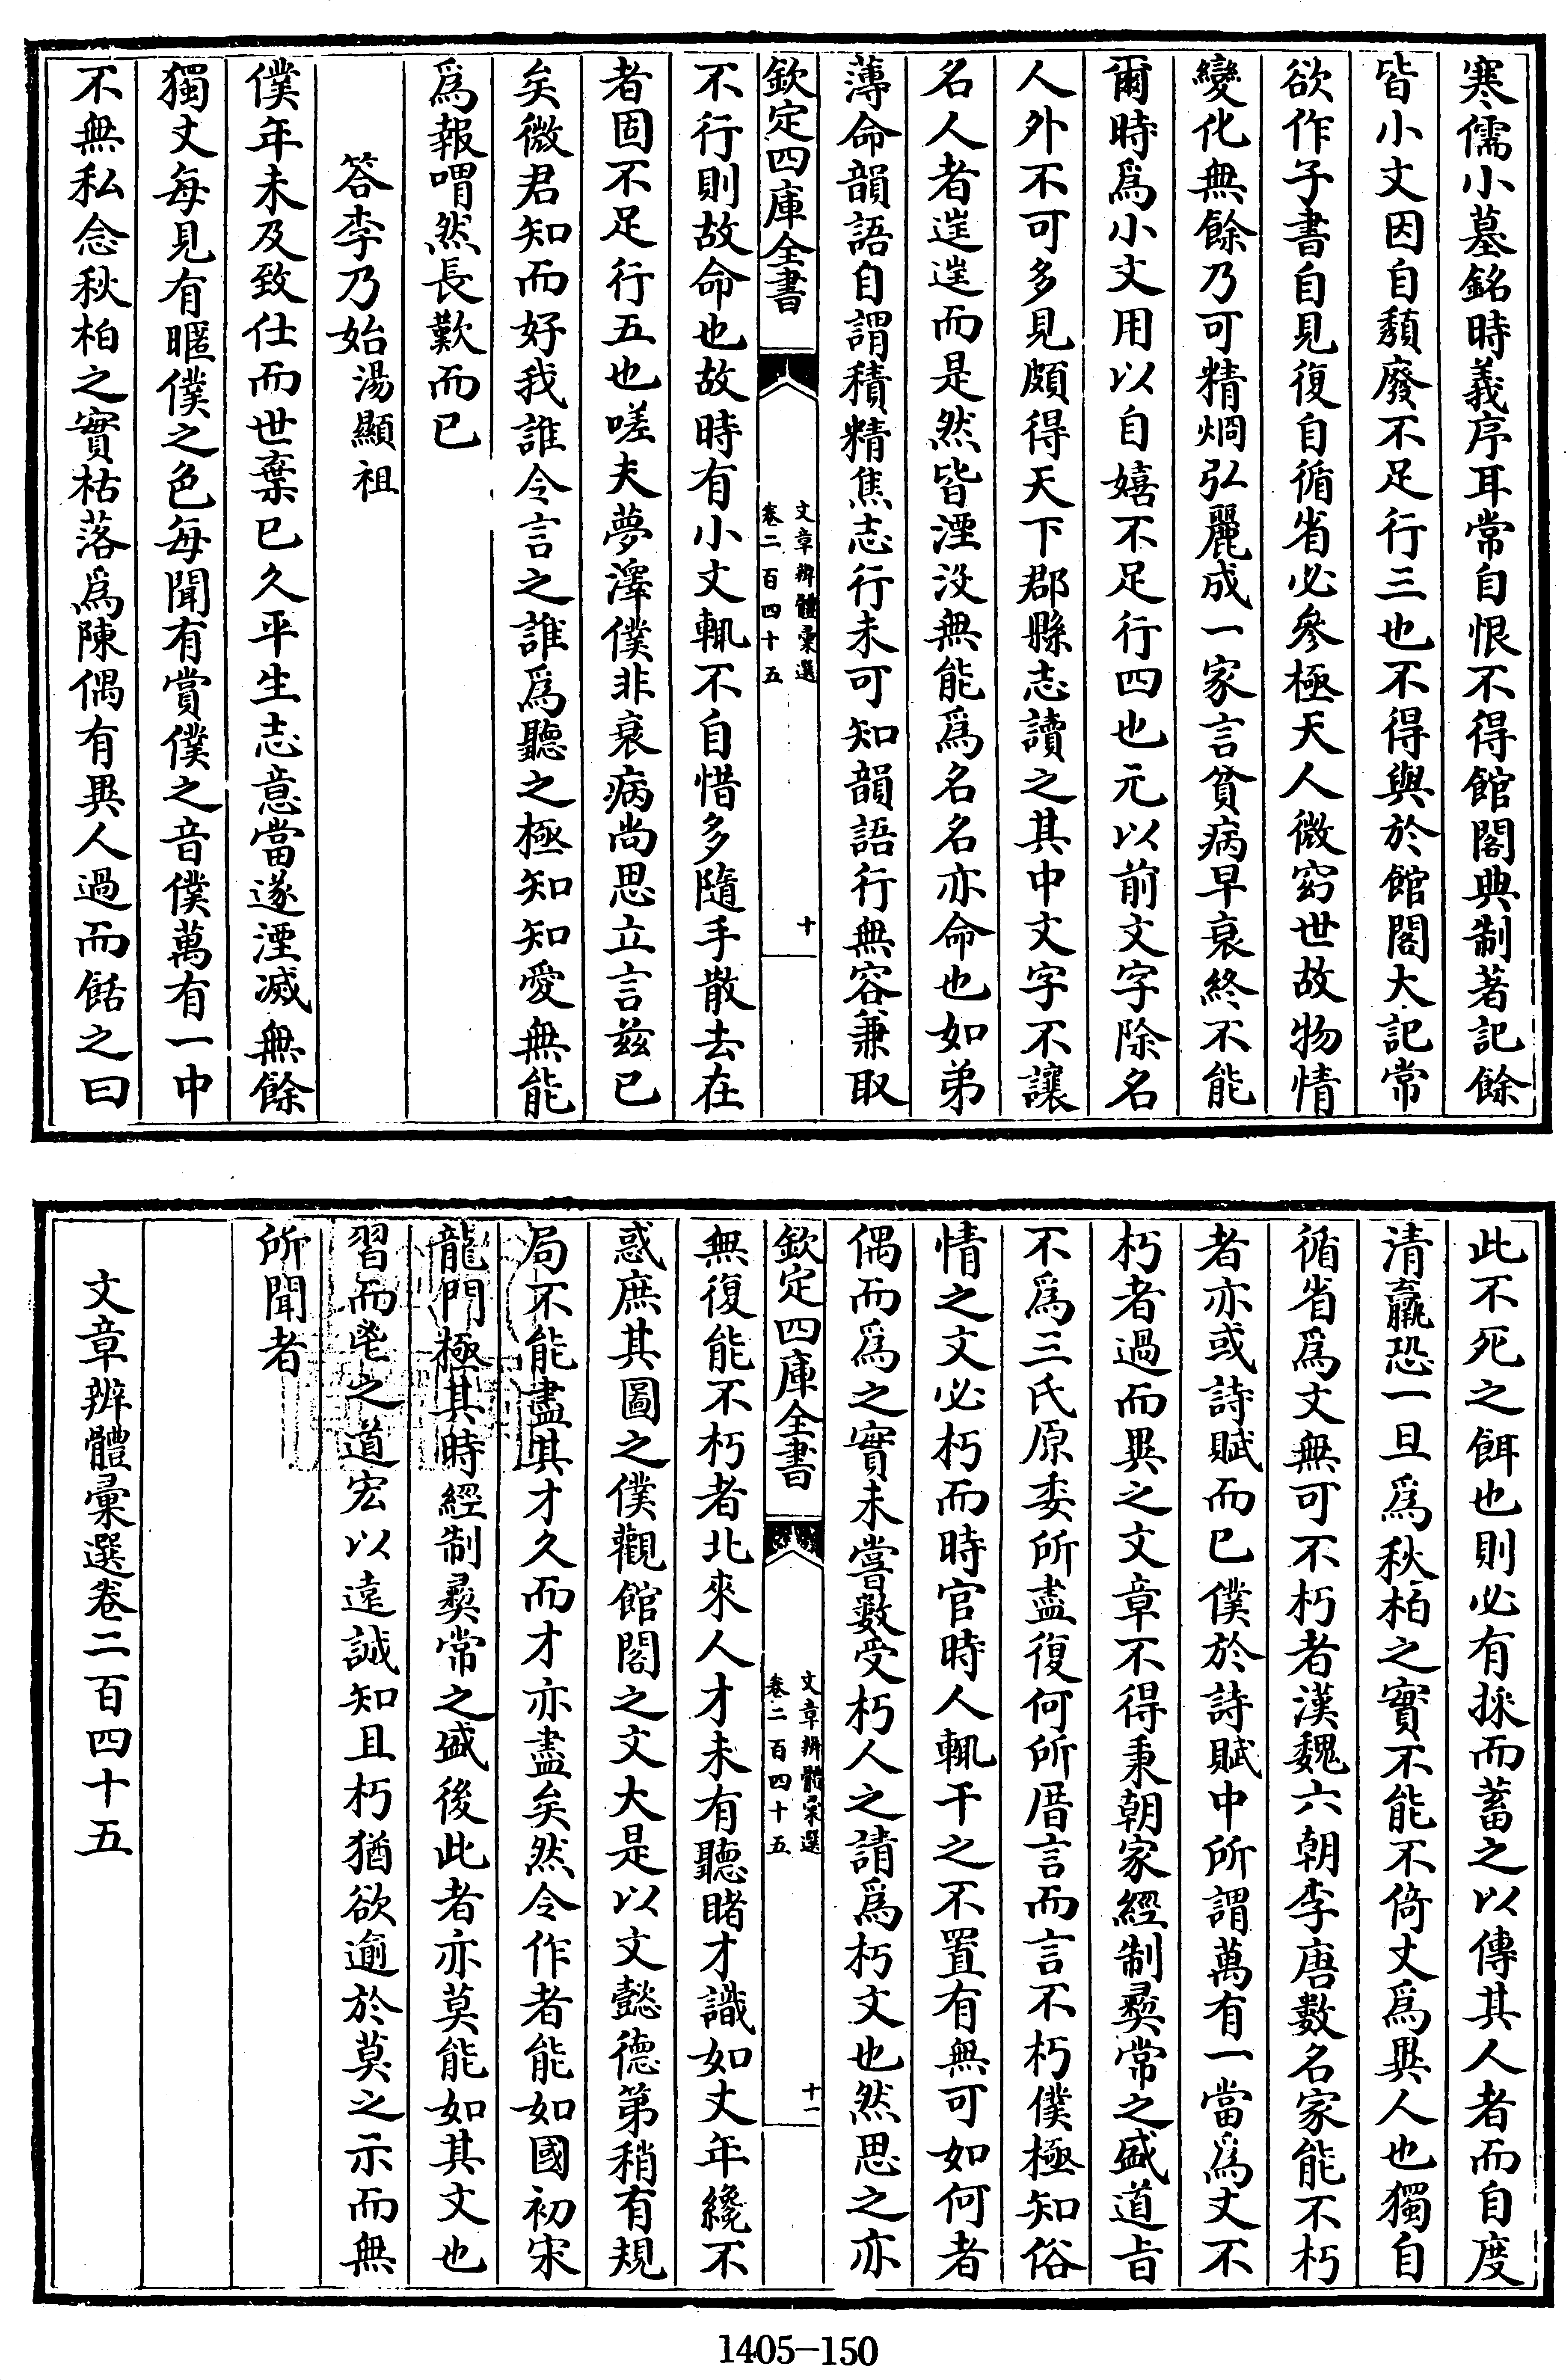 寒儒小墓銘時義序耳常自恨不得館閣典制著記餘
皆小文因自頹廢不足行三也不得與於館閣大記常
欲作子書自見復自循省必參極天人微窈世故物情
變化無餘乃可精烱弘麗成一家言貧病早衰終不能
爾時爲小文用以自嬉不足行四也元以前文字除名
人外不可多見頗得天下郡縣志讀之其中文字不讓
名人者逴逴而是然皆湮沒無能爲名名亦命也如弟
薄命韻語自謂積精焦志行未可知韻語行無容兼取
欽定四庫全書
文章辨體彙選
卷二百四十五
十
不行則故命也故時有小文輒不自惜多隨手散去在
者固不足行五也嗟夫夢澤僕非衰病尚思立言兹已
矣微君知而好我誰令言之誰爲聽之極知知愛無能
爲報喟然長歎而已
答李乃始湯顯祖
僕年未及致仕而世棄已久平生志意當遂湮滅無餘
獨丈每見有暱僕之色每聞有賞僕之音僕萬有一中
不無私念秋柏之實枯落爲陳偶有異人過而餂之曰
此不死之餌也則必有採而蓄之以傳其人者而自度
清羸恐一旦爲秋柏之實不能不倚丈爲異人也獨自
循省爲文無可不朽者漢魏六朝李唐數名家能不朽
者亦或詩賦而已僕於詩賦中所謂萬有一當爲丈不
朽者過而異之文章不得秉朝家經制彛常之盛道旨
不爲三氏原委所盡復何所厝言而言不朽僕極知俗
情之文必朽而時官時人輒干之不置有無可如何者
偶而爲之實未嘗數受朽人之請爲朽文也然思之亦
欽定四庫全書
文章辨體彙選
卷二百四十五
十一
無復能不朽者北來人才未有聽睹才識如丈年纔不
惑庶其圖之僕觀館閣之文大是以文懿德第稍有規
局不能盡其才久而才亦盡矣然令作者能如國初宋
龍門極其時經制彛常之盛後此者亦莫能如其文也
習而鬯之道宏以遠誠知且朽猶欲逾於莫之示而無
所聞者
文章辨體彙選卷二百四十五
1405-150